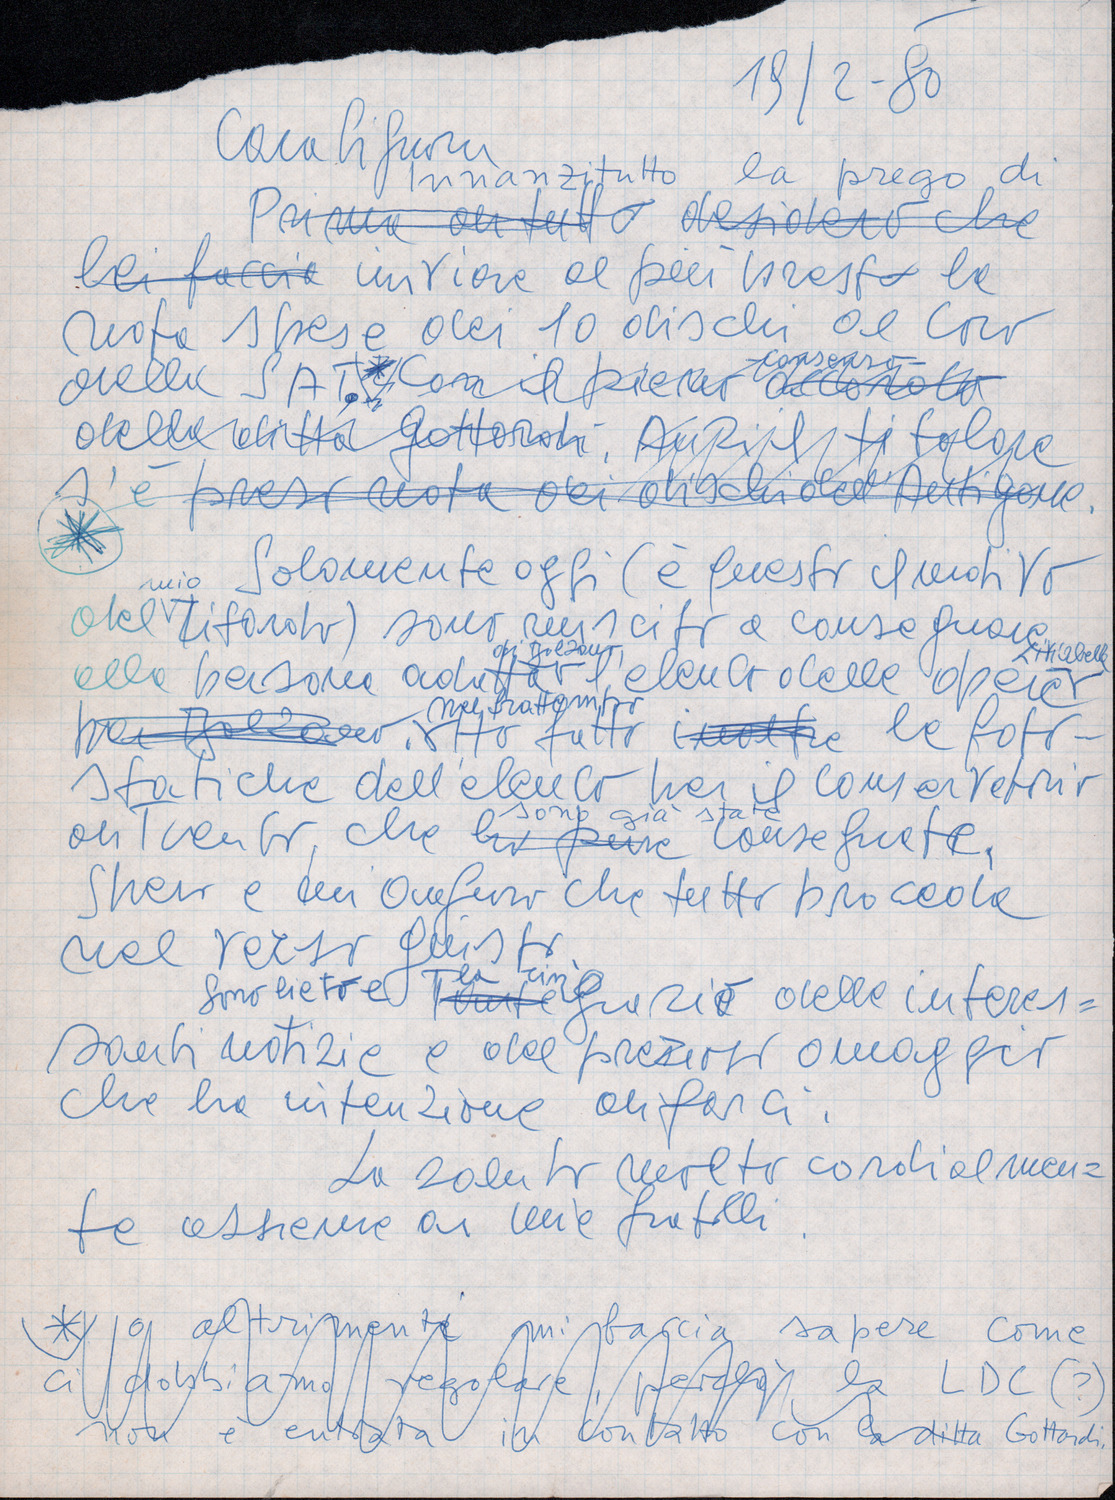 19/2-80
Cara Signora
Innanzitutto la prego di
Prima di tutto desidero che
Lei faccia inviare al più presto la
nota spese dei 10 dischi al Coro
della SAT. * Con il pieno accordo
consenso
della ditta Gottardi. Anzi il titolare
s'è preso nota dei dischi dell'Antigone.
*
Solamente oggi (è questo il motivo
mio
del ritardo) sono riuscito a consegnare
di Bolzano
alla persona adatta l'elenco delle opere
per Bolzano, nel frattempo
ho fatto inoltre le foto-
statiche dell'elenco per il Conservatorio
sono già state
di Trento, che ho pure consegnate.
Spero e mi auguro che tutto proceda
nel verso giusto.
Sono lieto e la
Tante grazie delle interes=
santi notizie e del prezioso omaggio
che ha intenzione di farci.
La saluto molto cordialmen=
te assieme ai miei fratelli.
* o altrimenti mi faccia sapere come
ci dobbiamo regolare, perchè la LDC (?)
non è entrata in contatto con la ditta Gottardi.